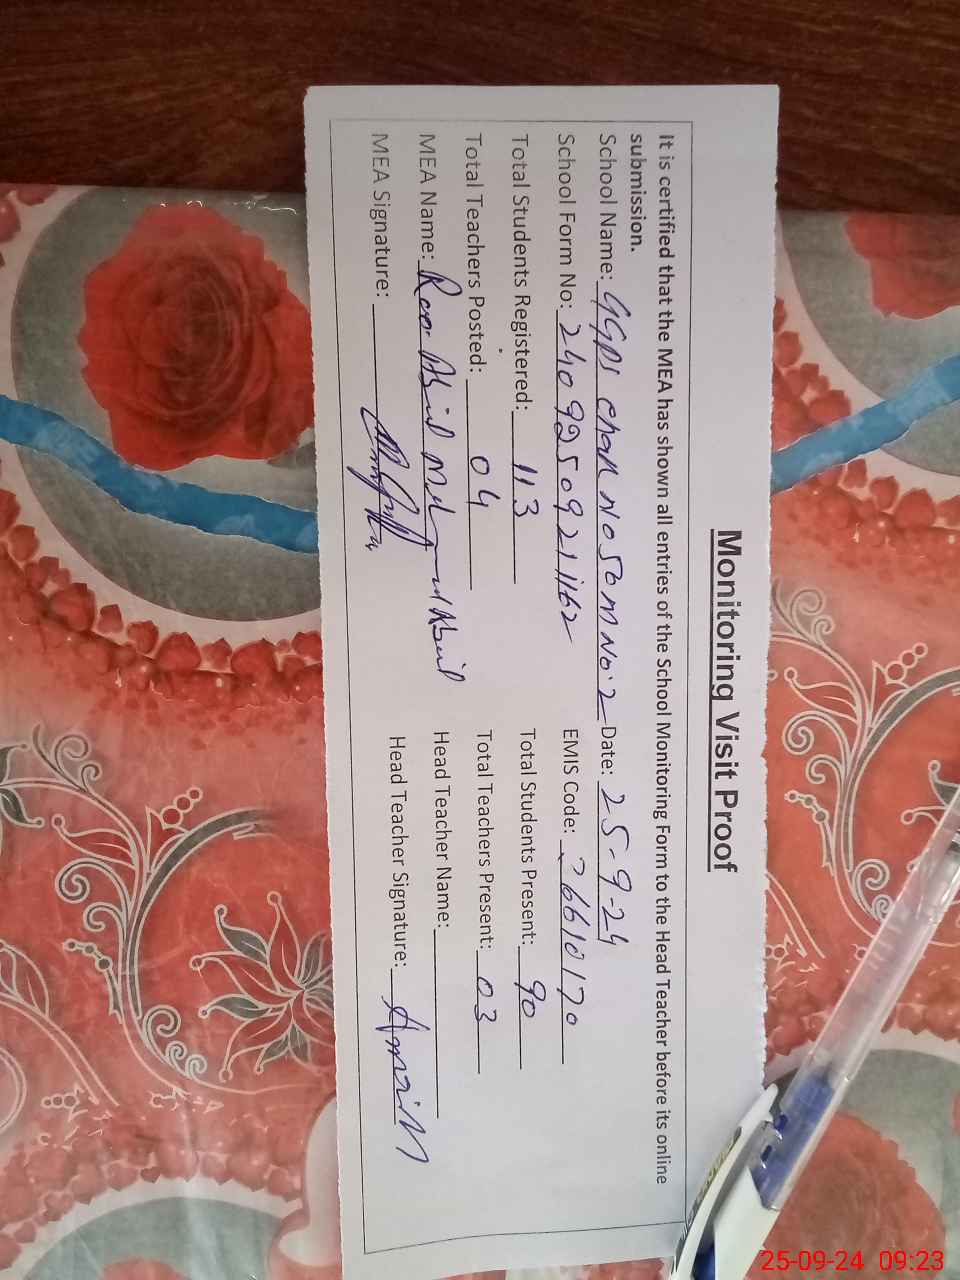 Monitoring Visit Proof
It is certified that the MEA has shown all entries of the School Monitoring Form to the Head Teacher before its online
submission.
School Name: GGPS Chak No 50 M No.2 Date: 25-9-24
School Form No: 2409250921162 EMIS Code: 36610170
Total Students Registered: 113 Total Students Present: 90
Total Teachers Posted: 04 Total Teachers Present: 03
MEA Name: Rao Abid Abid Head Teacher Name:
MEA Signature: Head Teacher Signature:
25-09-24 09:23